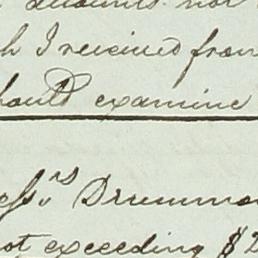 amounts not
h I received from
hould examine
essrs Drummo
ot exceeding $2